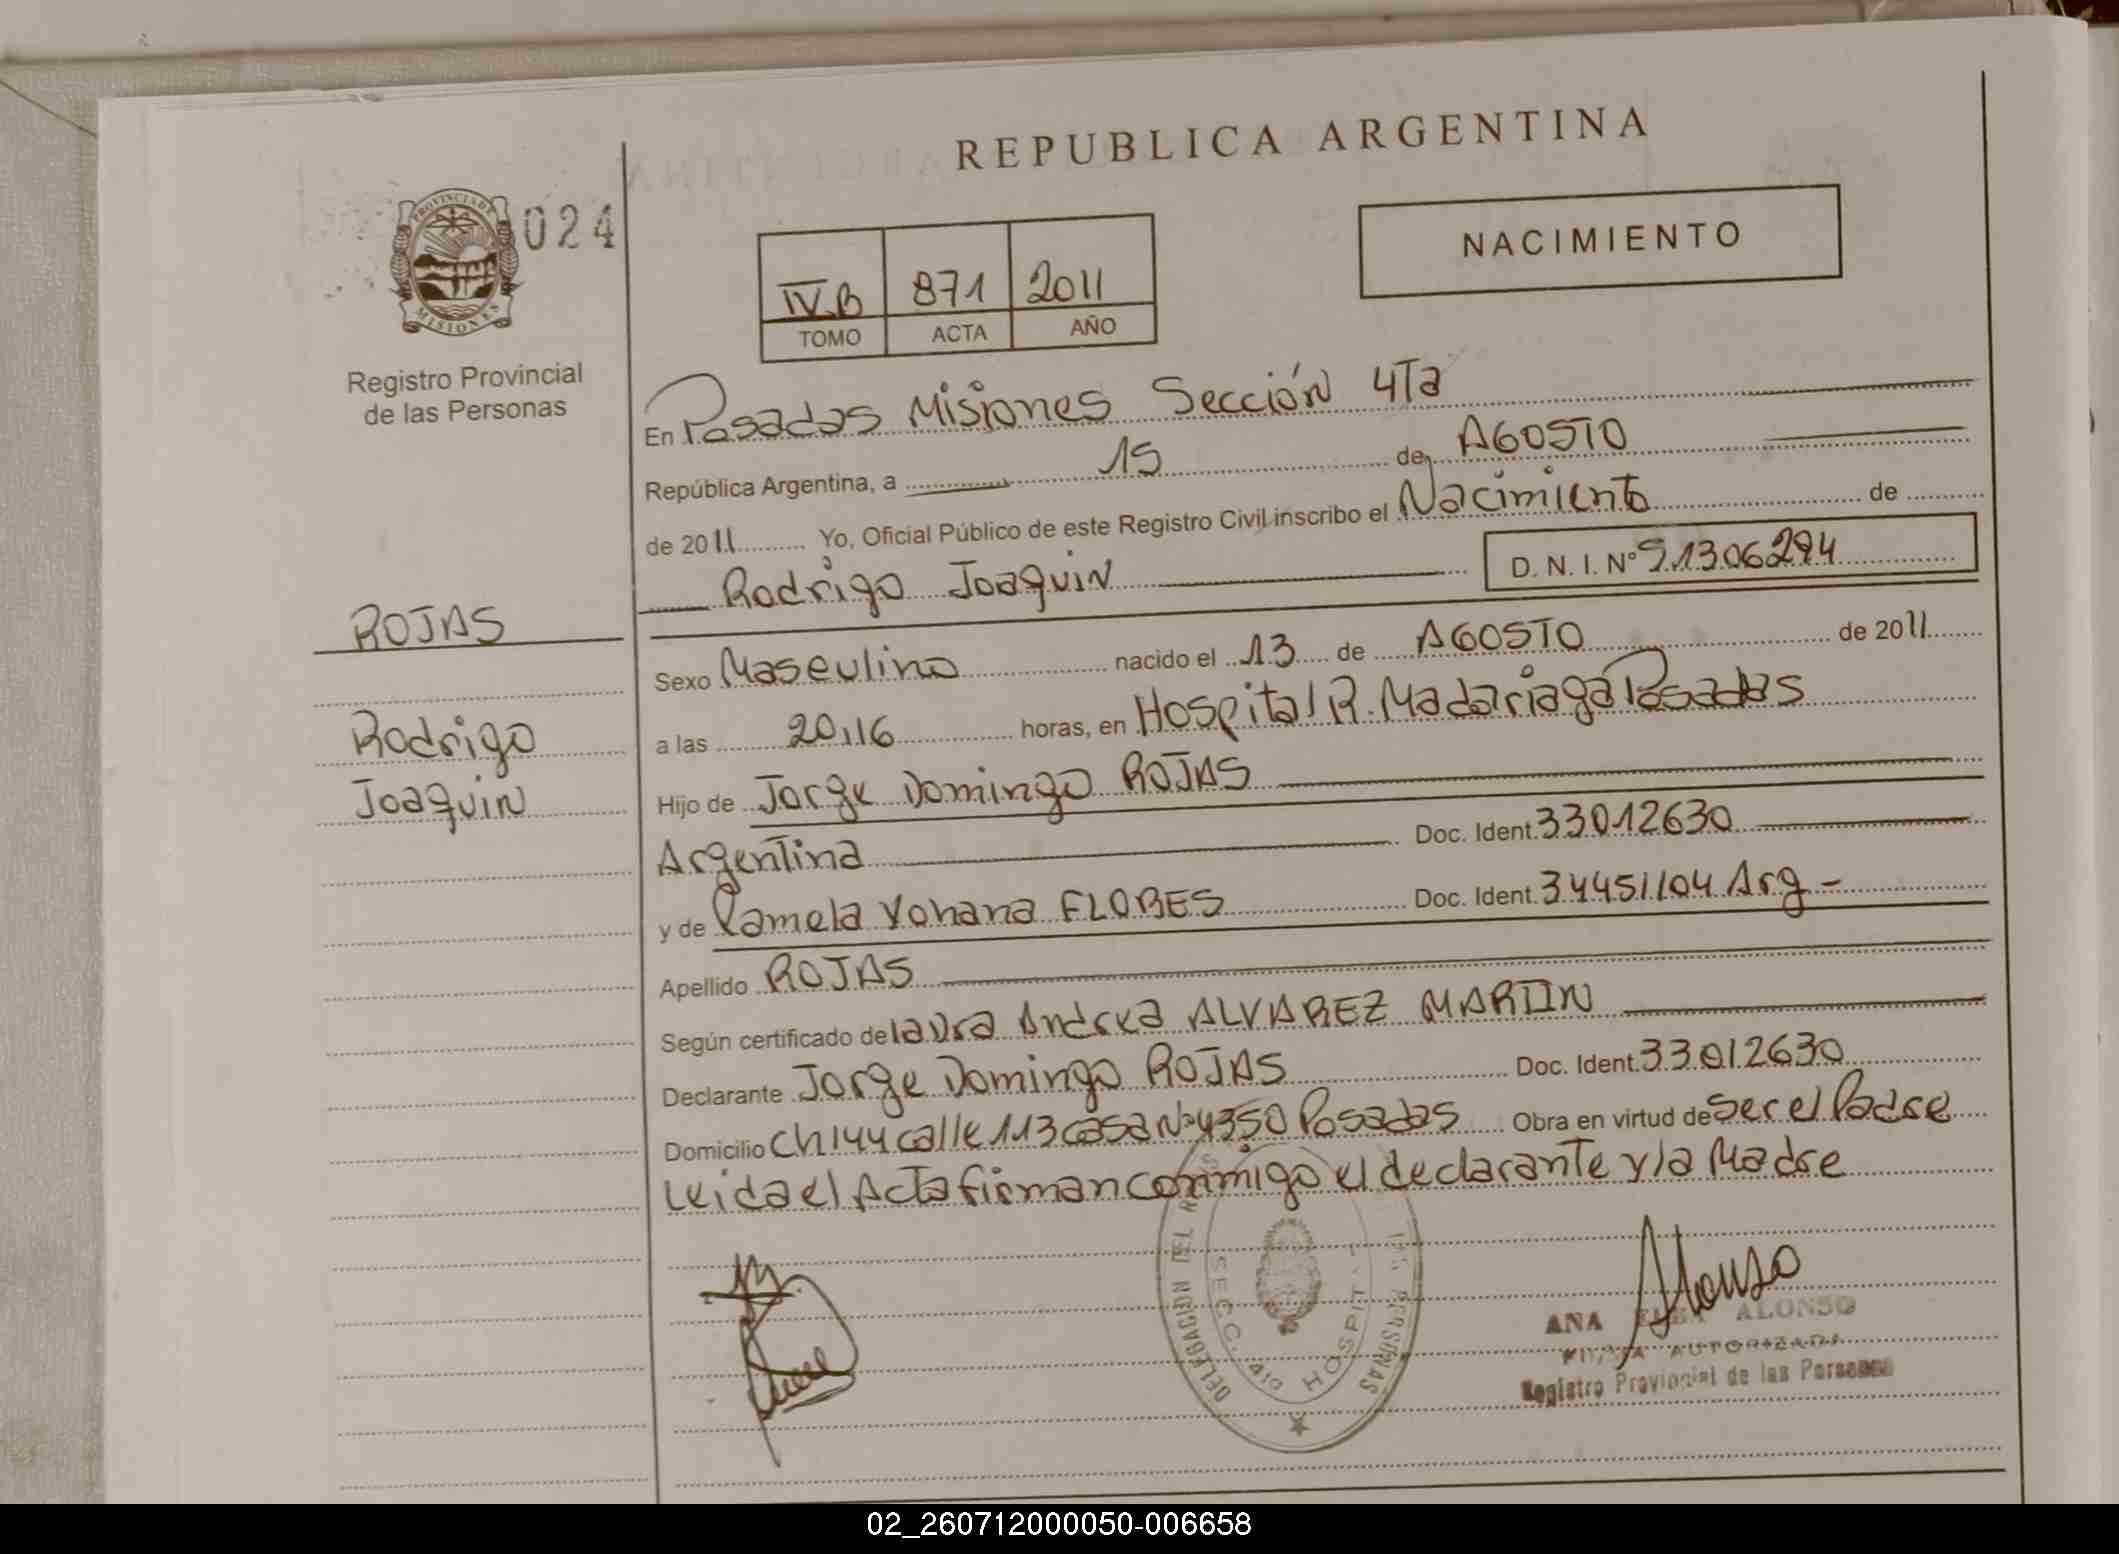 REPUBLICA ARGENTINA
PROVINCIA DE
MISIONES
024
Registro Provincial
de las Personas
NACIMIENTO
IV.B 871 2011
TOMO ACTA AÑO
En Posadas Misiones Sección 4Ta
República Argentina, a 15 de AGOSTO
de 2011 Yo, Oficial Público de este Registro Civil inscribo el Nacimiento de
Rodrigo Joaquin D. N. I. Nº 51306294
ROJAS
Rodrigo
Joaquin
Sexo Masculino nacido el 13 de AGOSTO de 2011
a las 20,16 horas, en Hospital R. Madariaga Posadas
Hijo de Jorge Domingo ROJAS
Argentina Doc. Ident. 33012630
y de Pamela Yohana FLORES Doc. Ident. 34451104 Arg -
Apellido ROJAS
Según certificado de laura Andrea ALVAREZ MARTIN
Declarante Jorge Domingo ROJAS Doc. Ident. 33012630
Domicilio Ch 144 calle 113 casa Nº 4350 Posadas Obra en virtud de ser el Padre
leida el Acta firman conmigo el declarante y la Madre
DELEGACION DEL PERSONAS
SECC. 4ta HOSPIT
Alonso
ANA ELBA ALONSO
FIRMA AUTORIZADA
Registro Provincial de las Personas
02_260712000050-006658